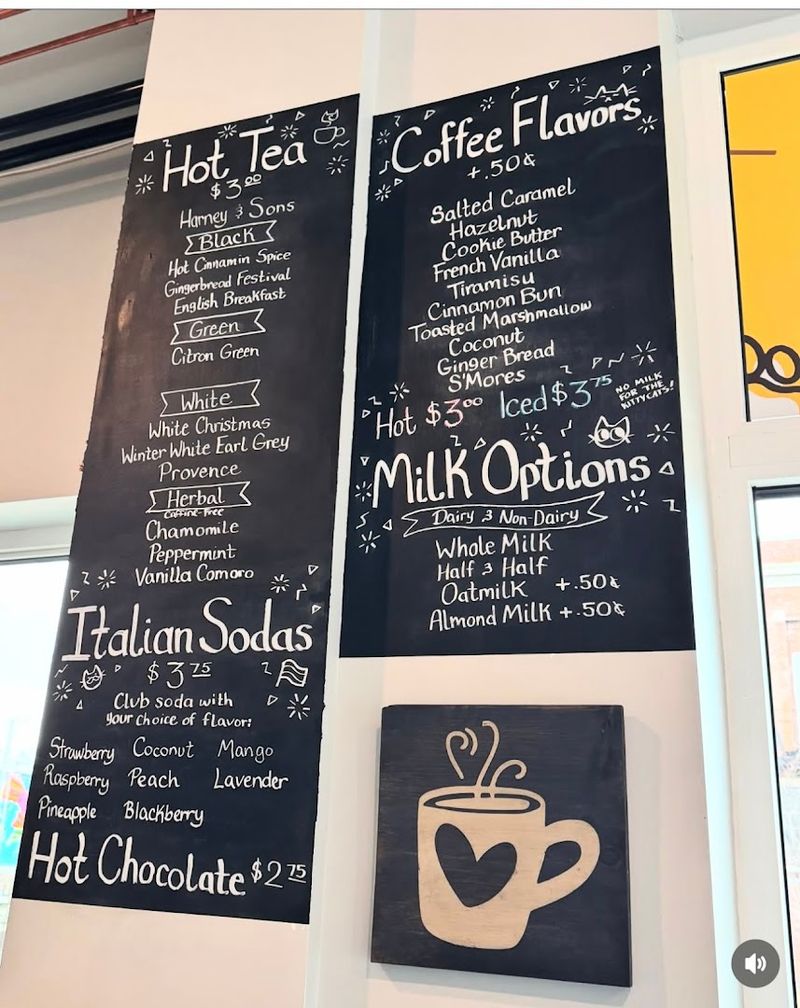 Hot Tea
$3.00
Harney & Sons
Black
Hot Cinnamin Spice
Gingerbread Festival
English Breakfast
Green
Citron Green
White
White Christmas
Winter White Earl Grey
Provence
Herbal
Caffine-Free
Chamomile
Peppermint
Vanilla Comoro
Italian Sodas
$3.75
Club soda with
your choice of flavor:
Strawberry Coconut Mango
Raspberry Peach Lavender
Pineapple Blackberry
Hot Chocolate $2.75
Coffee Flavors
+.50¢
Salted Caramel
Hazelnut
Cookie Butter
French Vanilla
Tiramisu
Cinnamon Bun
Toasted Marshmallow
Coconut
Ginger Bread
S'Mores
Hot $3.00 Iced $3.75
NO MILK
FOR THE
KITTYCATS!
Milk Options
Dairy & Non-Dairy
Whole Milk
Half & Half
Oatmilk +.50¢
Almond Milk +.50¢